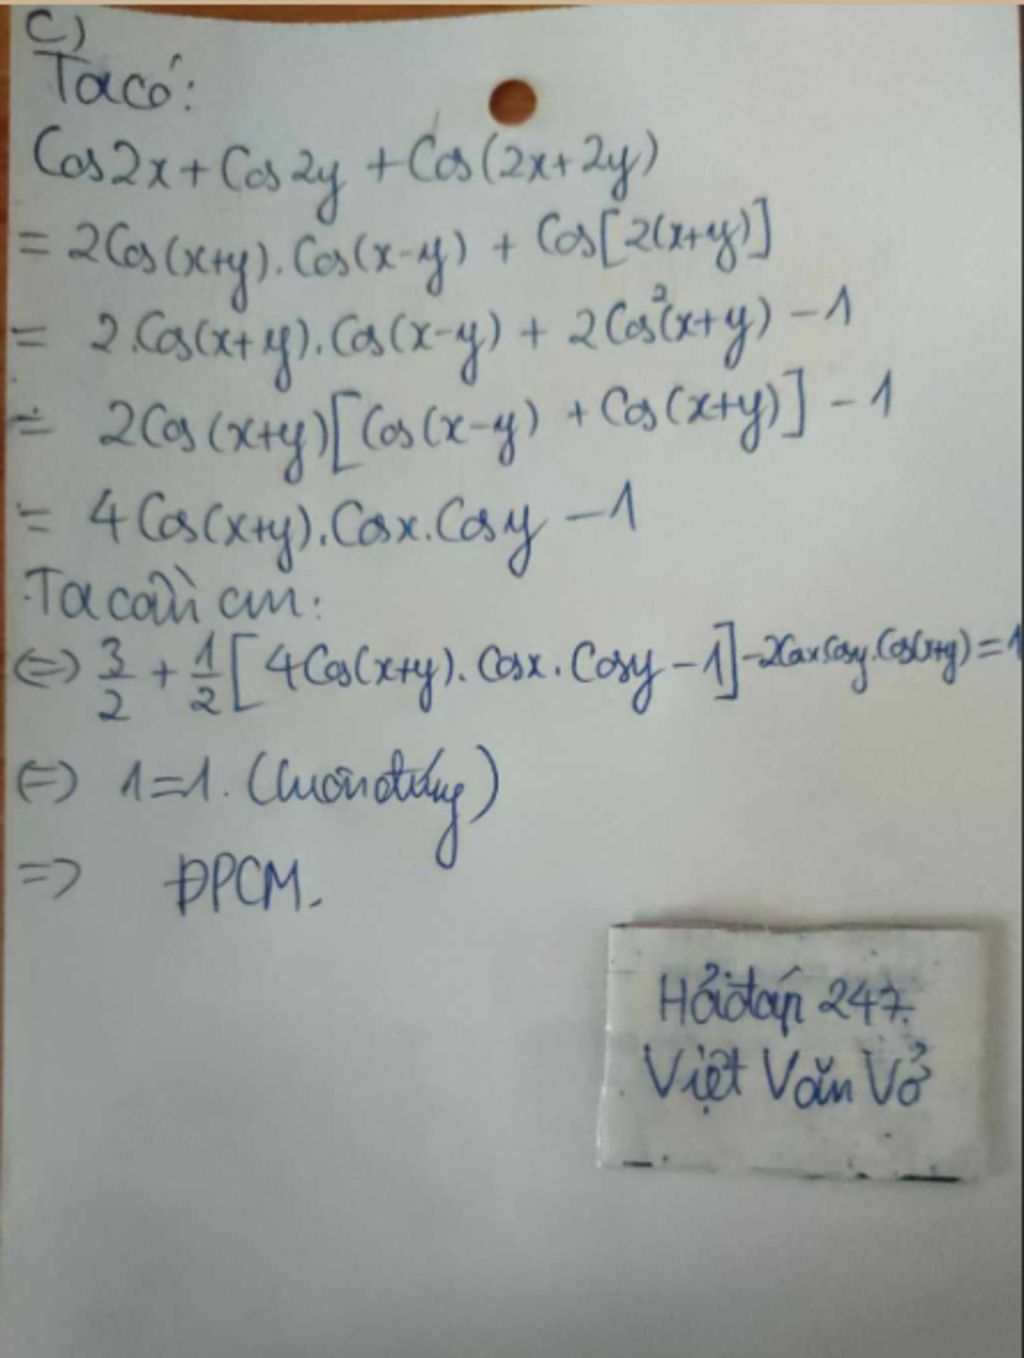 c)
Ta có:
Cos2x + Cos2y + Cos(2x+2y)
= 2Cos(x+y).Cos(x-y) + Cos[2(x+y)]
= 2.Cos(x+y).Cos(x-y) + 2Cos²(x+y) - 1
= 2Cos(x+y)[Cos(x-y) + Cos(x+y)] - 1
= 4Cos(x+y).Cosx.Cosy - 1
Ta cần cm:
(=) 3/2 + 1/2[4Cos(x+y).Cosx.Cosy - 1] - 2CosxCosy.Cos(x+y) = 1
(=) 1=1. (luôn đúng)
=> ĐPCM.
Hỏi đáp 247.
Việt Văn Vở